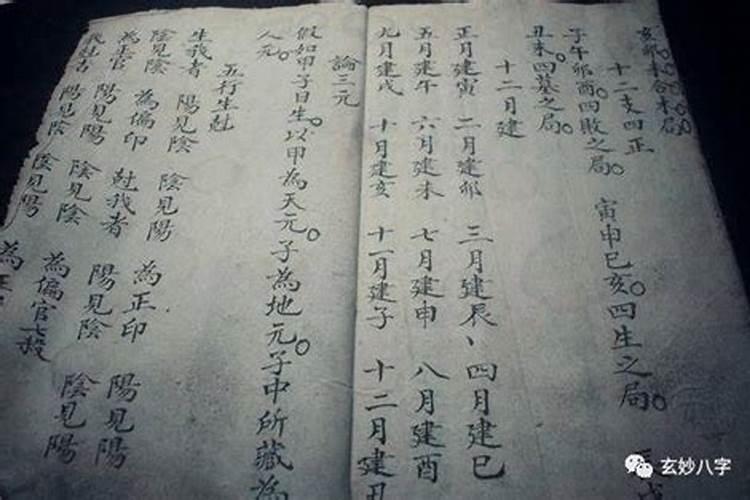 亥。卯。未合木局。
十二支四正
子午卯酉。四敗之局。 寅申巳亥。四生之局。
丑未。四墓之局。
十二月建
正月建寅 二月建卯 三月建辰、四月建巳
五月建午 六月建未 七月建申 八月建酉
九月建戌 十月建亥 十一月建子 十二月建丑
論三元
假如甲子日生。以甲為天元。子為地元。子中所藏為
人元。
五行生尅
生我者 陽見陰 陰見陽 為正印 陽見陽
陰見陰 為偏印 尅我者 陽見陰 陰見陽
為正官 陽見陽 陰見陰 為偏官七殺
我尅者 陽見陰 陰見陽 為正
玄妙八字